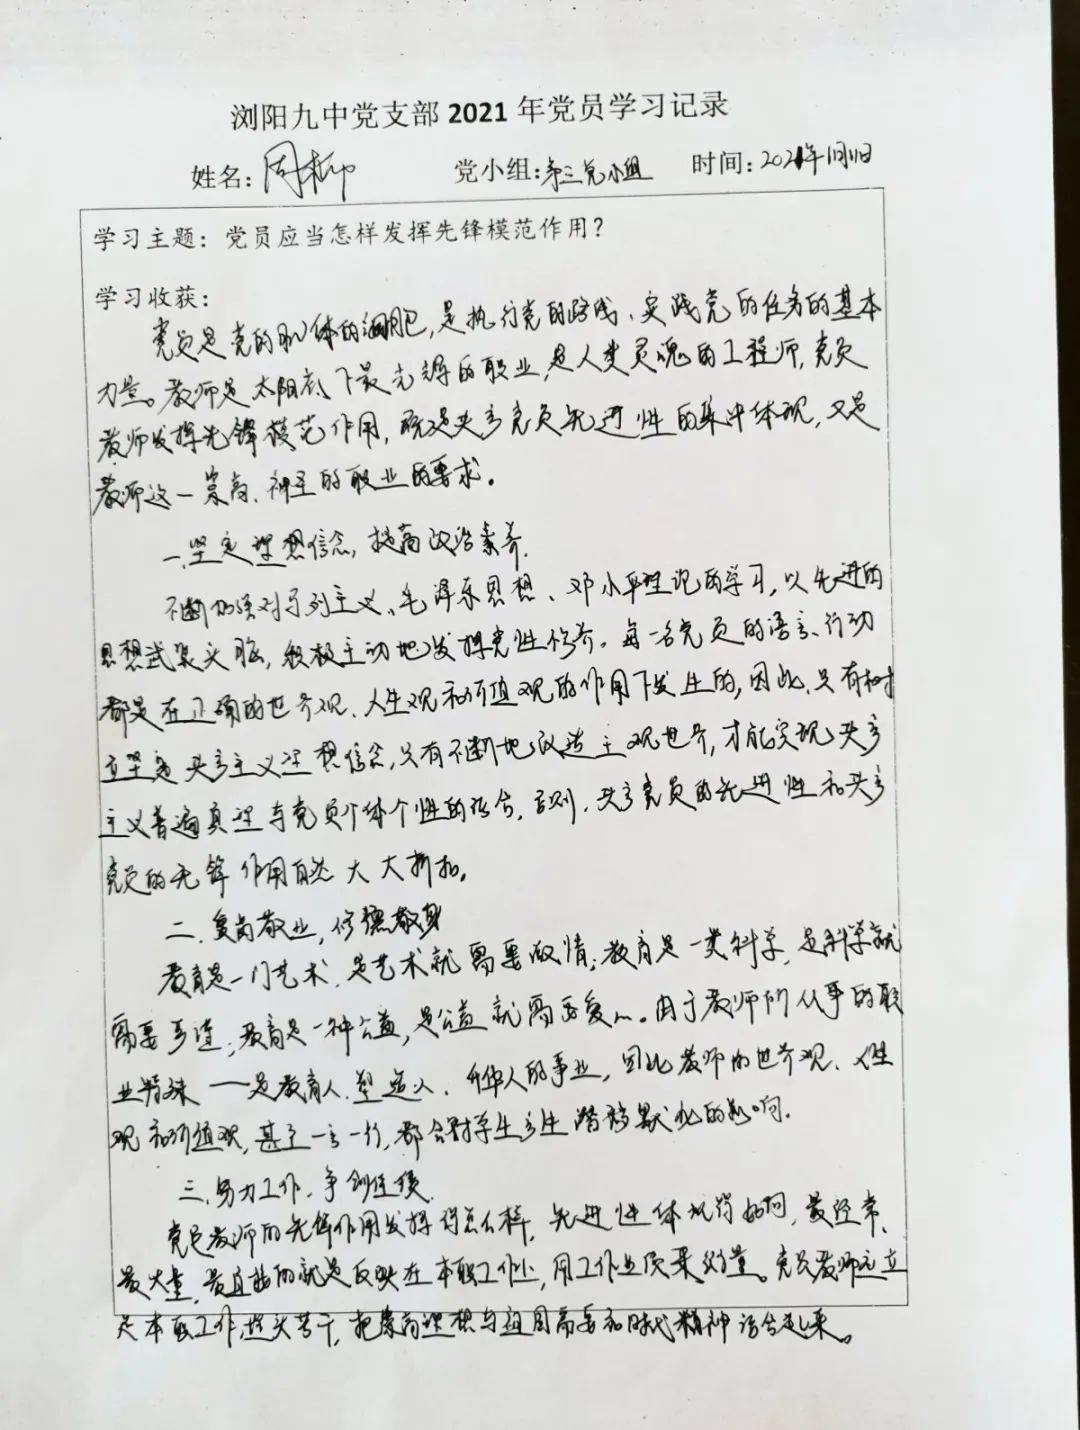 浏阳九中党支部 2021 年党员学习记录
姓名:周柳 党小组:第三党小组 时间:2021年11月11日
学习主题：党员应当怎样发挥先锋模范作用？
学习收获：
党员是党的肌体的细胞,是执行党的路线、实践党的任务的基本
力量。教师是太阳底下最光辉的职业,是人类灵魂的工程师,党员
教师发挥先锋模范作用,既是共产党员先进性的集中体现,又是
教师这一崇高、神圣的职业的要求。
一.坚定理想信念,提高政治素养.
不断加强对马列主义、毛泽东思想、邓小平理论的学习,以先进的
思想武装头脑,积极主动地发挥党性修养。每一名党员的语言、行动
都是在正确的世界观、人生观和价值观的作用下发生的,因此,只有树
立坚定共产主义理想信念,只有不断地改造主观世界,才能实现共产
主义普遍真理与党员个体个性的结合,否则,共产党员的先进性和共产
党员的先锋作用自然大大折扣。
二.爱岗敬业,修德敬身
教育是一门艺术,是艺术就需要激情;教育是一类科学,是科学就
需要严谨;教育是一种公益,是公益就需要爱心。由于教师所从事的职
业特殊——是教育人.塑造人、升华人的事业,因此教师的世界观、人生
观和价值观,甚至一言一行,都会对学生产生潜移默化的影响.
三.努力工作、争创佳绩.
党员教师的先锋作用发挥得怎么样,先进性体现得如何,最经常、
最大量、最直接的就是反映在本职工作上,用工作业绩来衡量。党员教师应立
足本职工作,埋头苦干,把崇高理想与祖国需要和时代精神结合起来。